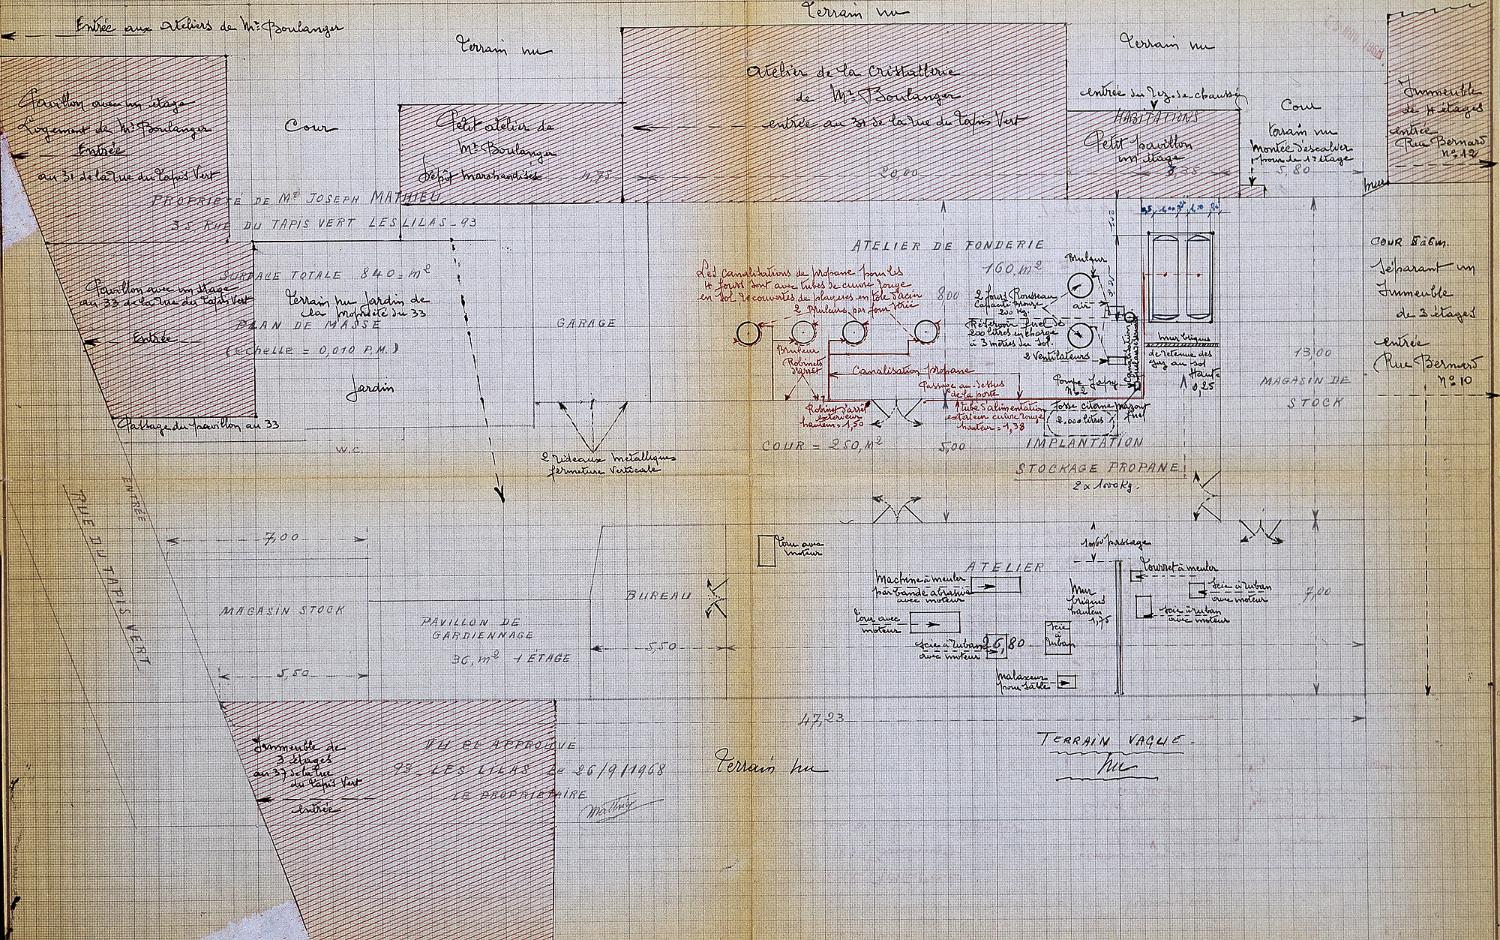 Entrée aux Ateliers de Mr Boulanger
Terrain nu
Terrain nu
Terrain nu
Pavillon avec un étage
Logement de Mr Boulanger
Entrée
au 31 de la rue du Tapis Vert
Cour
Petit atelier de
Mr Boulanger
Dépôt marchandises
4,75
Atelier de la Cristallerie
de Mr Boulanger
entrée au 31 de la rue du Tapis Vert
20,00
entrée du rez-de-chaussée
HABITATIONS
Petit pavillon
un étage
5,35
Cour
terrain nu
Montée d'escalier
pour le 1er étage
5,80
mur
Immeuble
de 4 étages
entrée
Rue Bernard
n° 12
PROPRIÉTÉ DE Mr JOSEPH MATHIEU
35, RUE DU TAPIS VERT LES LILAS - 93
SURFACE TOTALE 840 = m²
PLAN DE MASSE
(échelle = 0,010 P.M.)
Pavillon avec un étage
au 33 de la rue du Tapis Vert
Entrée
Terrain nu Jardin de
la propriété du 33
Jardin
Passage du pavillon au 33
W.C.
GARAGE
2 rideaux métalliques
fermeture verticale
ATELIER DE FONDERIE
160, m²
Les Canalisations de propane pour les
4 fours sont avec tubes de cuivre rouge
en sol recouvertes de plaques en tôle d'acier
2 Bruleurs par four
8,00
Bruleur
Robinets
d'arrêt
Canalisation propane
Passage au-dessus
de la porte
Robinet d'arrêt
extérieur
hauteur = 1,50
tube d'alimentation
extérieur cuivre rouge
hauteur = 1,38
Bruleur
2 fours Rousseau
Capacité bronze
200 Kg.
air
Réservoir fuel de
200 litres en charge
à 3 mètres du sol.
2 Ventilateurs
Pompe Japy
n° 2
Fosse citerne mazout
fuel
2.000 litres
mur briques
de retenue des
gaz au sol
Haut.
0,25
COUR = 250, M²
5,00
IMPLANTATION
STOCKAGE PROPANE
2 x 1000 Kg.
13,00
MAGASIN DE
STOCK
COUR 5 à 6 m.
Séparant un
Immeuble
de 3 étages
entrée
(Rue Bernard
n° 10
ENTRÉE
RUE DU TAPIS VERT
7,00
MAGASIN STOCK
5,50
PAVILLON DE
GARDIENNAGE
36, m² 1 ÉTAGE
BUREAU
5,50
Tour avec
moteur
ATELIER
Machine à meuler
par bande abrasive
avec moteur
Tour avec
moteur
Scie à ruban
avec moteur
26,80
Scie
à
ruban
Malaxeur
pour sable
Mur
briques
hauteur
1,75
passage
Touret à meuler
Scie à ruban
avec moteur
Scie à ruban
avec moteur
7,00
47,23
TERRAIN VAGUE
nu
Terrain nu
Immeuble de
3 étages
au 37 de la rue
du Tapis Vert
entrée
VU ET APPROUVÉ
93 - LES LILAS Le 26/9/1968
LE PROPRIÉTAIRE